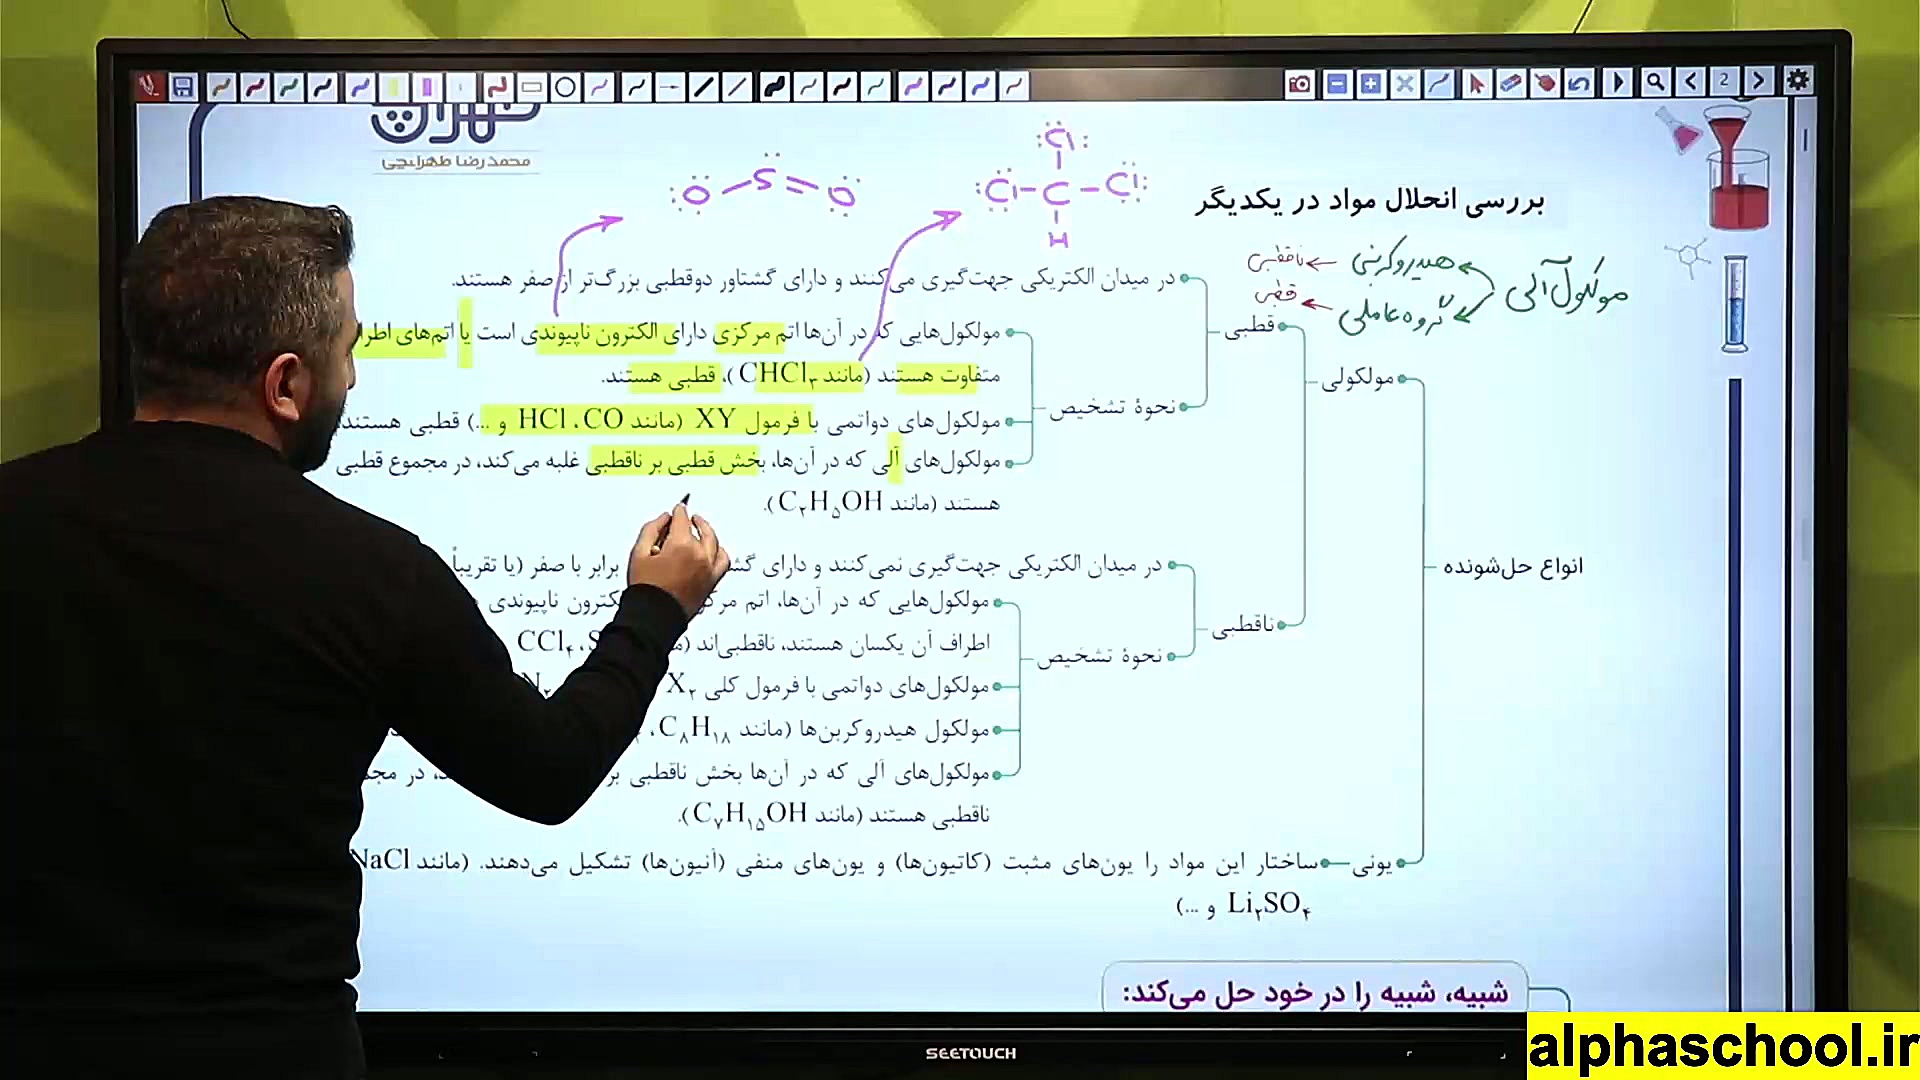 محمدرضا طهرانچی
:C̈l:
:Ö – S̈ = Ö:
:C̈l – C – C̈l:
H
بررسی انحلال مواد در یکدیگر
مولکول آلی
هیدروکربنی ← ناقطبی
گروه عاملی ← قطبی
انواع حل‌شونده
مولکولی
قطبی
در میدان الکتریکی جهت‌گیری می‌کنند و دارای گشتاور دوقطبی بزرگ‌تر از صفر هستند.
نحوهٔ تشخیص
مولکول‌هایی که در آن‌ها اتم مرکزی دارای الکترون ناپیوندی است یا اتم‌های
متفاوت هستند (مانند CHCl₃)، قطبی هستند.
مولکول‌های دواتمی با فرمول XY (مانند HCl ،CO و ...) قطبی هستند
مولکول‌های آلی که در آن‌ها، بخش قطبی بر ناقطبی غلبه می‌کند، در مجموع قطبی
هستند (مانند C₂H₅OH).
ناقطبی
در میدان الکتریکی جهت‌گیری نمی‌کنند و دارای برابر با صفر (یا تقریباً
نحوهٔ تشخیص
مولکول‌هایی که در آن‌ها، اتم ناپیوندی
اطراف آن یکسان هستند، ناقطبی‌اند CCl₄
مولکول‌های دواتمی با فرمول کلی X₂ N₂
مولکول هیدروکربن‌ها (مانند C₈H₁₈،
مولکول‌های آلی که در آن‌ها بخش ناقطبی در
ناقطبی هستند (مانند C₇H₁₅OH).
یونی
ساختار این مواد را یون‌های مثبت (کاتیون‌ها) و یون‌های منفی (آنیون‌ها) تشکیل می‌دهند. (مانند NaCl
Li₂SO₄ و ...)
شبیه، شبیه را در خود حل می‌کند:
2
SEETOUCH
alphaschool.ir